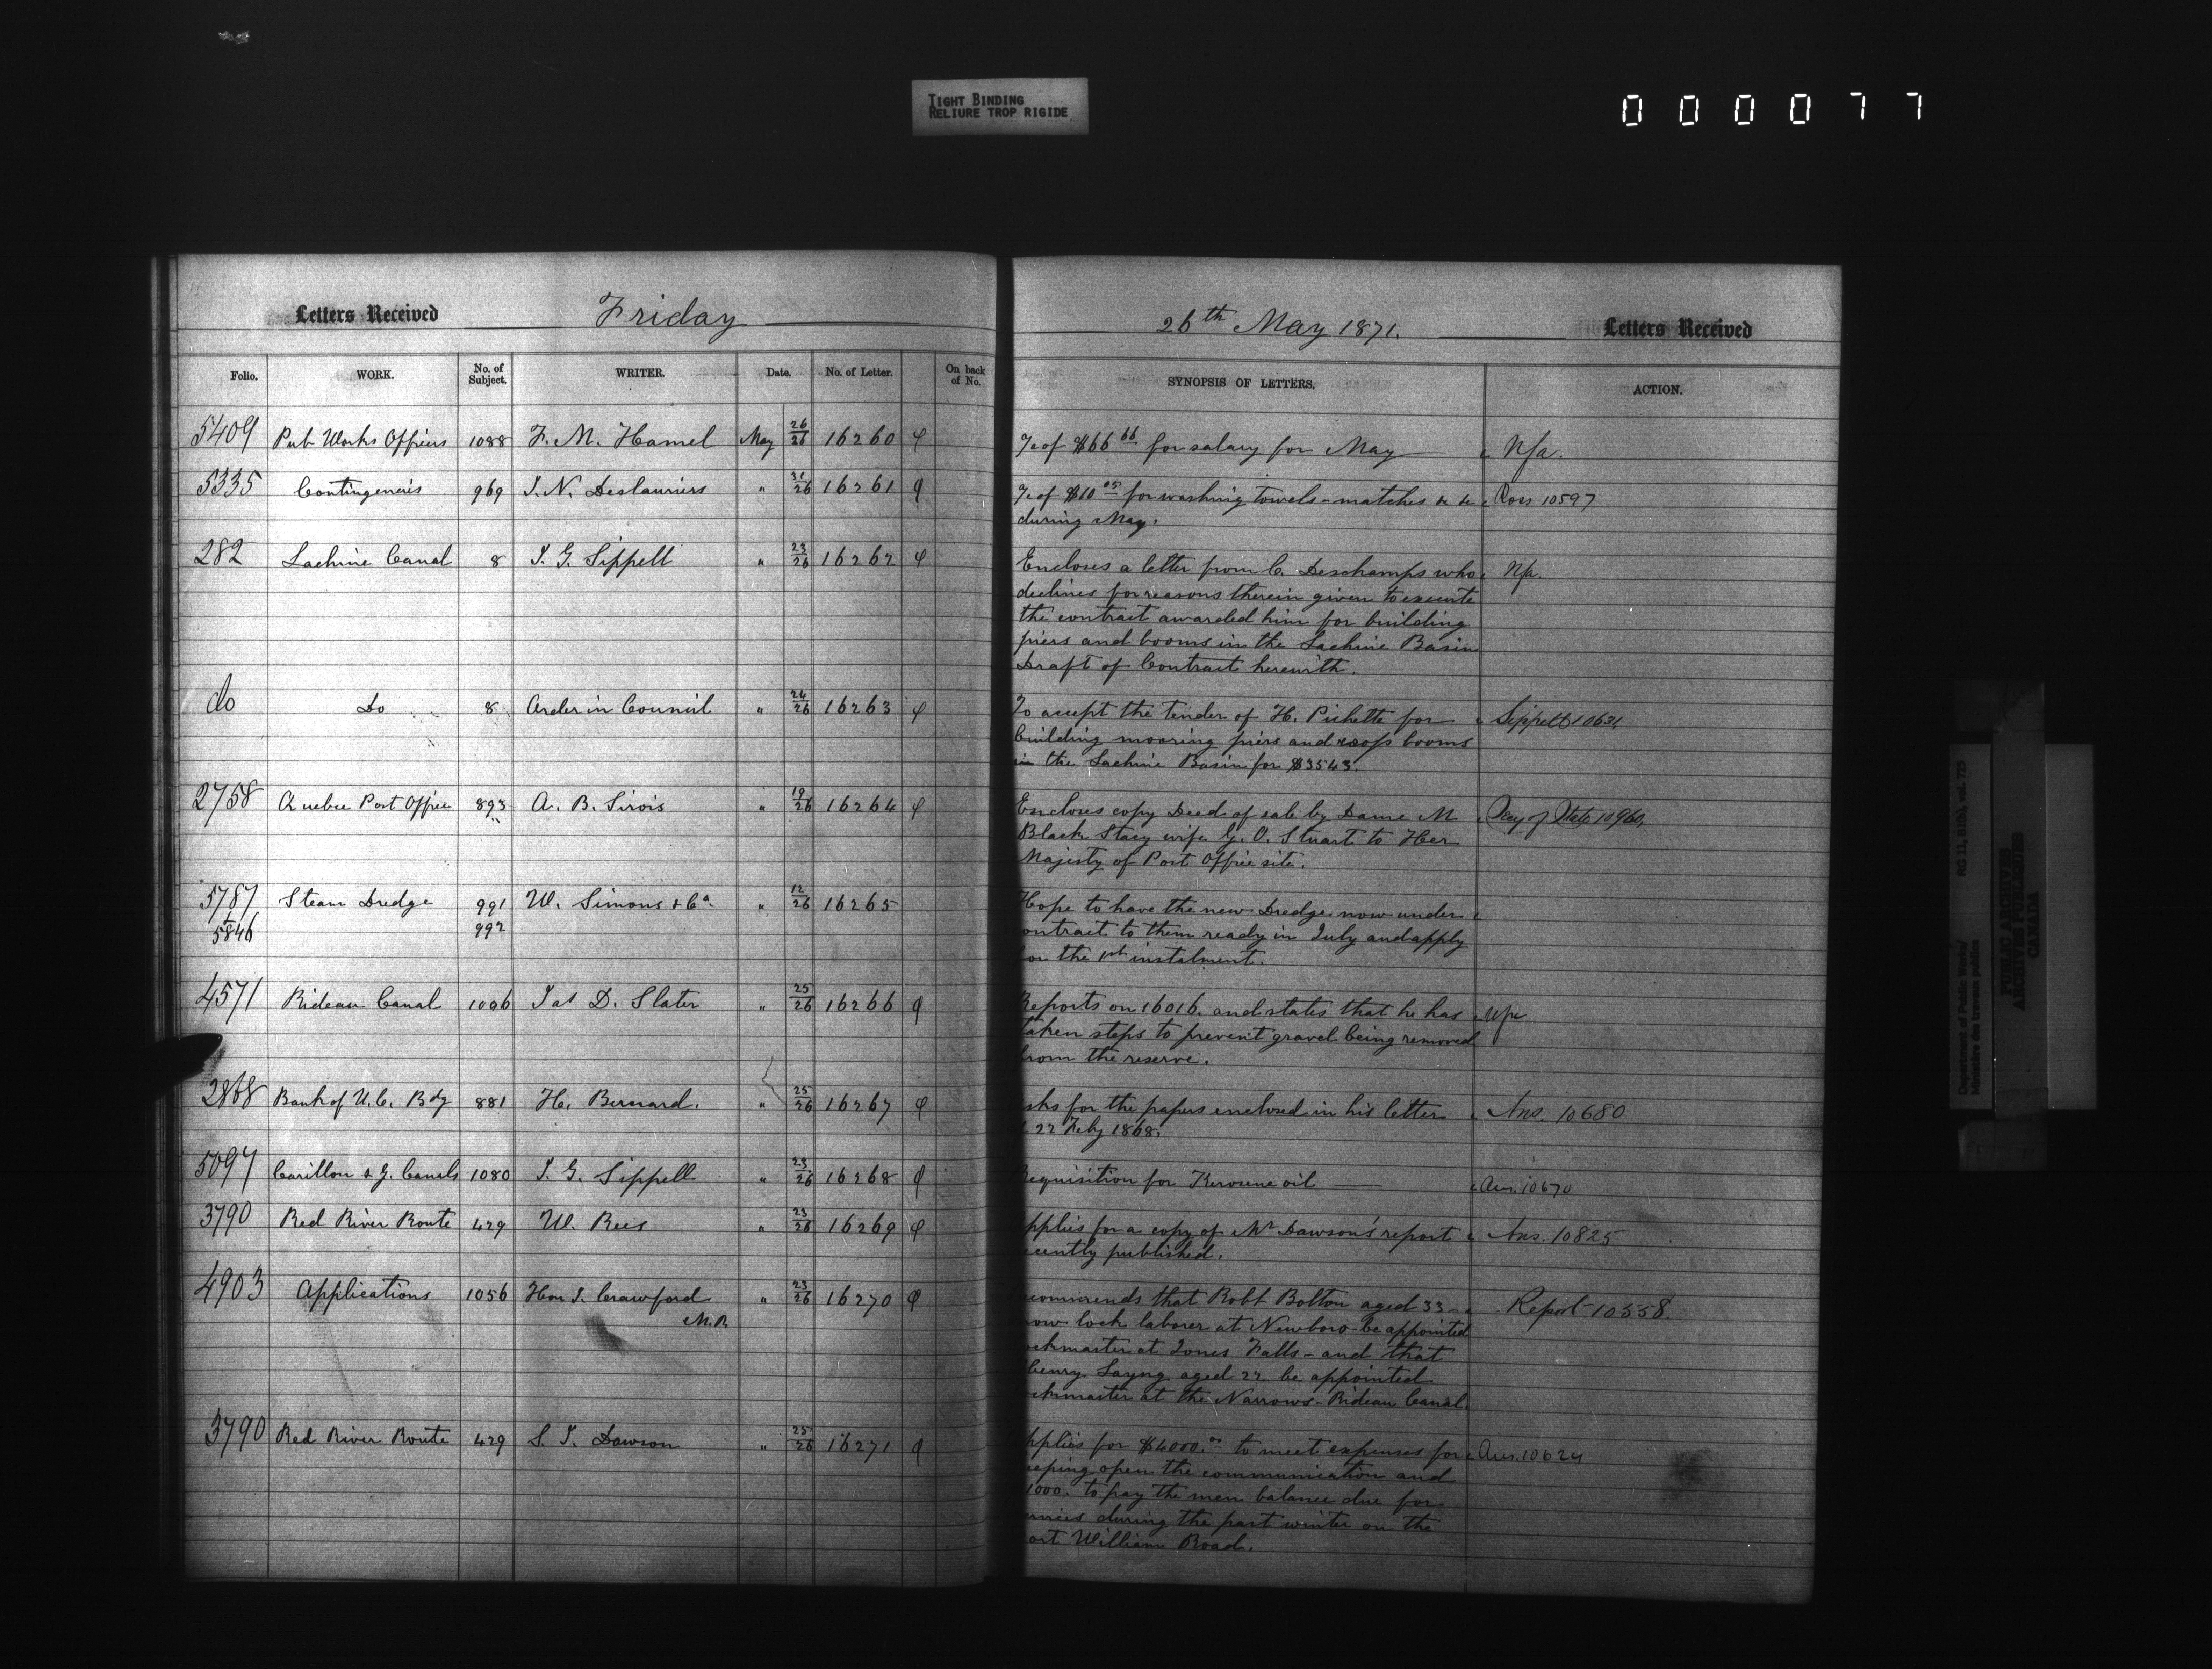 TIGHT BINDING
RELIURE TROP RIGIDE
000077
Letters Received Friday
26th May 1871. Letters Received
Folio. WORK. No. of Subject. WRITER. Date. No. of Letter. On back of No. SYNOPSIS OF LETTERS. ACTION.
5409 Pub Works Officers 1088 F. M. Hamel May 26/26 16260 of $66 66 for salary for May Nfa.
5335 Contingencies 969 J. N. Deslauriers " 31/26 16261 of $10 for washing towels - matches &c &c Ross 10597
during May.
282 Lachine Canal 8 J. G. Sippell " 23/26 16262 Encloses a letter from C. Deschamps who Nfa.
declines for reasons therein given to execute
the contract awarded him for building
piers and booms in the Lachine Basin
Draft of Contract herewith.
do Do 8 Order in Council " 24/26 16263 To accept the tender of H. Pichette for Sippell 10631
building mooring piers and booms
in the Lachine Basin for $3543.
2758 Quebec Post Office 893 A. B. Sirois " 19/26 16264 Encloses copy Deed of sale by Dame M of State 10960
Black Stacy wife G. O. Stuart to Her
Majesty of Post Office site.
5787 Steam Dredge 991 W. Simons & Co. " 12/26 16265 Hope to have the new Dredge now under
5846 992 ontract to them ready in July and apply
or the 1st instalment.
4571 Rideau Canal 1096 Jas D. Slater " 25/26 16266 Reports on 16016. and states that he has Nfa
taken steps to prevent gravel being removed
from the reserve.
2868 Bank of U. C. Bdg 881 H. Bernard. " 25/26 16267 sks for the papers enclosed in his letter Ans. 10680
22 Feby 1868.
5097 Carillon & G. Canals 1080 J. G. Sippell " 23/26 16268 equisition for Kerosene oil — Ans. 10670
3790 Red River Route 429 W. Rees " 23/26 16269 pplies for a copy of Mr Dawson's report Ans. 10825
ecently published.
4903 Applications 1056 Hon J. Crawford " 23/26 16270 ecommends that Robt Bolton aged 33 - Report 10558.
M.P. now lock laborer at Newboro be appointed
ockmaster at Jones Falls - and that
Henry Layng aged 27 be appointed
ockmaster at the Narrows - Rideau Canal.
3790 Red River Route 429 S. J. Dawson " 25/26 16271 pplies for $4000.00 to meet expenses for Ans. 10624
eeping open the communication and
1000. to pay the men balance due for
ervices during the past winter on the
ort William Road.
Department of Public Works/
Ministère des travaux publics
RG 11, B1(b), vol. 725
PUBLIC ARCHIVES
ARCHIVES PUBLIQUES
CANADA